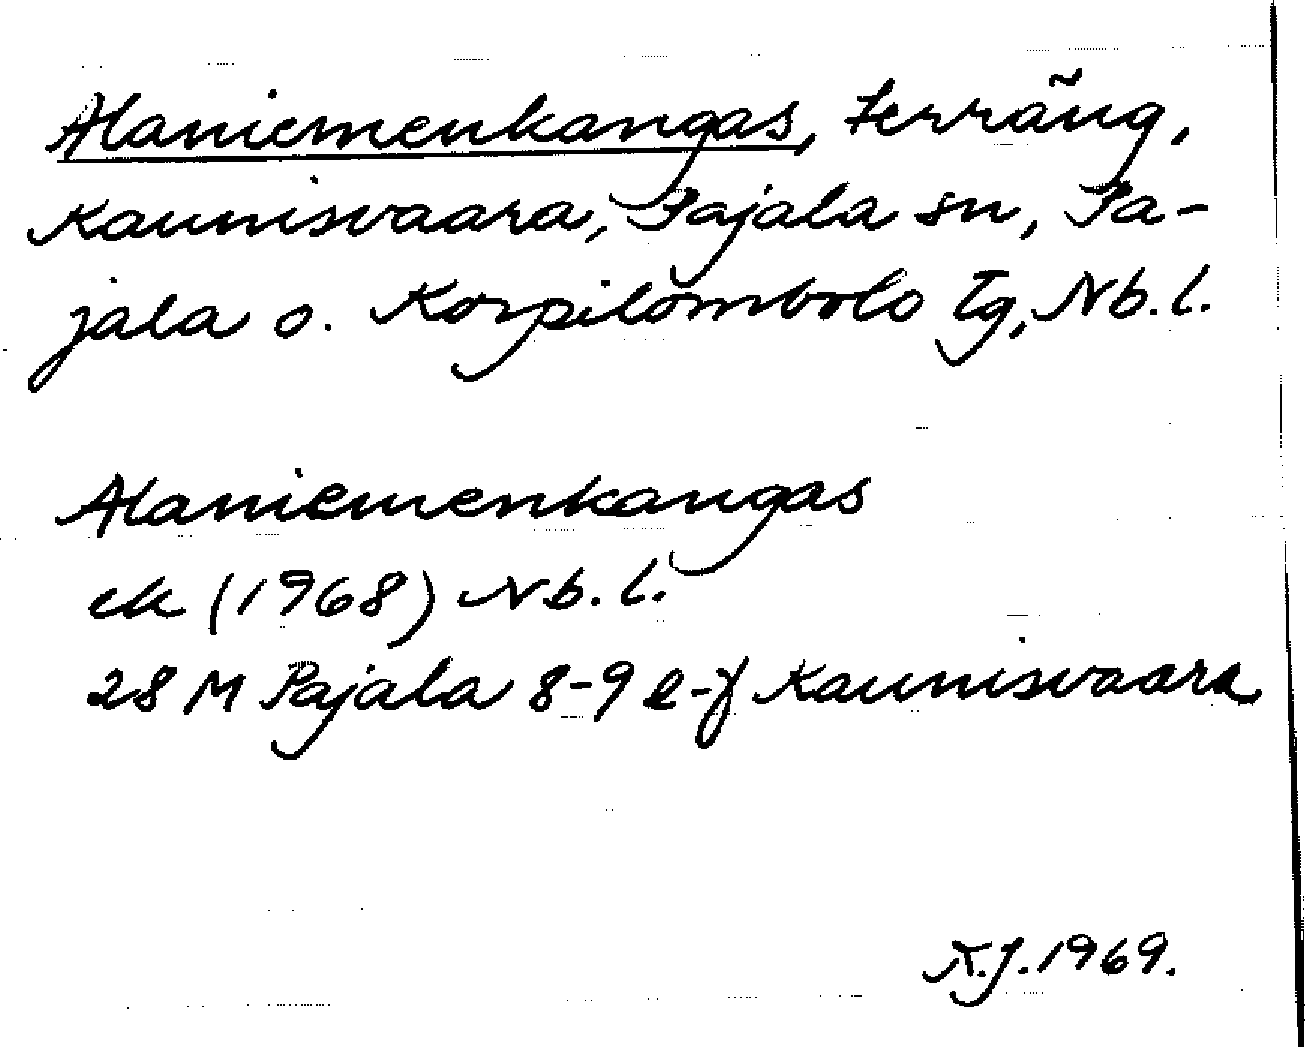 Alaniemenkangas, terräng,
Kaunisvaara, Pajala sn, Pa-
jala o. Korpilombolo tg, Nb.l.
Alaniemenkangas
ek (1968) Nb.l.
28 M Pajala 8-9 e-f Kaunisvaara
K.J. 1969.